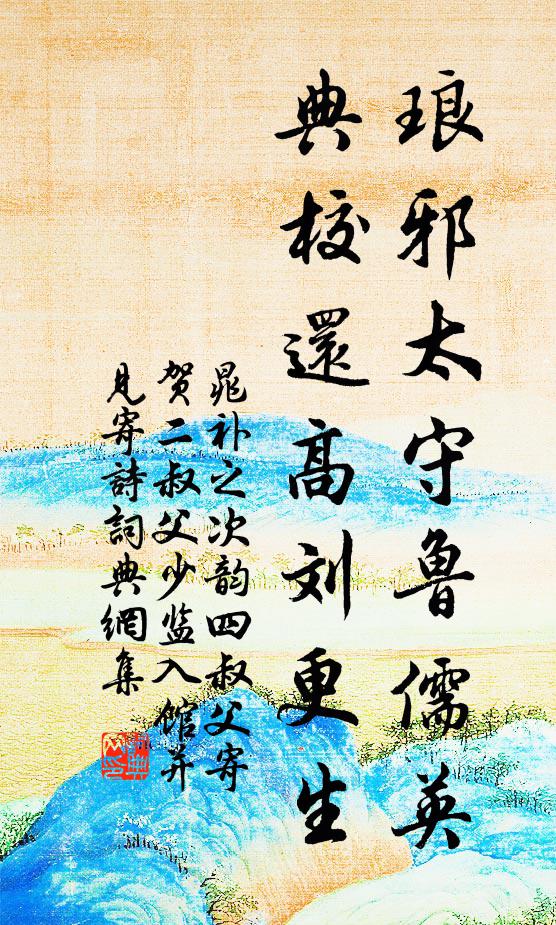 琅邪太守魯儒英
典校還高刘更生
晁补之次韵四叔父寄
贺二叔父少监入馆并
见寄詩詞典網集